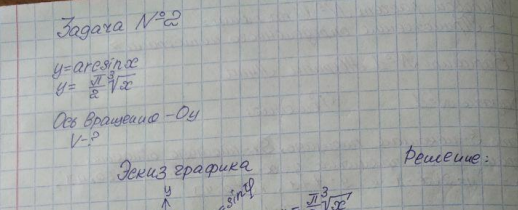 Задача №2
y=arcsinx
y= π/2 ∛x
Ось вращения – Oy
V-?
Эскиз графика
Решение:
y
π ∛x